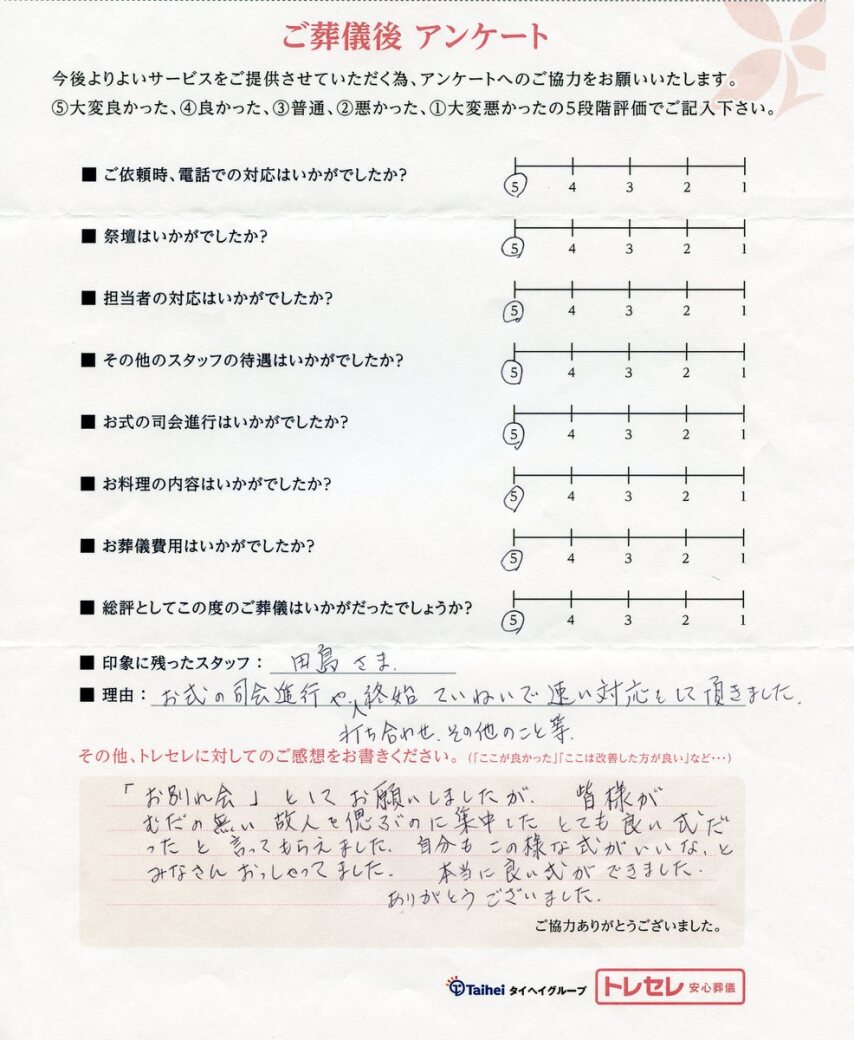 ご葬儀後 アンケート
今後よりよいサービスをご提供させていただく為、アンケートへのご協力をお願いいたします。
⑤大変良かった、④良かった、③普通、②悪かった、①大変悪かったの5段階評価でご記入下さい。
■ ご依頼時、電話での対応はいかがでしたか?
5 4 3 2 1
■ 祭壇はいかがでしたか?
5 4 3 2 1
■ 担当者の対応はいかがでしたか?
5 4 3 2 1
■ その他のスタッフの待遇はいかがでしたか?
5 4 3 2 1
■ お式の司会進行はいかがでしたか?
5 4 3 2 1
■ お料理の内容はいかがでしたか?
5 4 3 2 1
■ お葬儀費用はいかがでしたか?
5 4 3 2 1
■ 総評としてこの度のご葬儀はいかがだったでしょうか?
5 4 3 2 1
■ 印象に残ったスタッフ： 田島さま.
■ 理由： お式の司会進行や、終始ていねいで速い対応をして頂きました.
打ち合わせ、その他のこと等.
その他、トレセレに対してのご感想をお書きください。(「ここが良かった」「ここは改善した方が良い」など…)
「お別れ会」としてお願いしましたが、皆様が
むだの無い故人を偲ぶのに集中したとても良い式だ
ったと言ってもらえました. 自分もこの様な式がいいな、と
みなさんおっしゃってました. 本当に良い式ができました.
ありがとうございました.
ご協力ありがとうございました。
Taihei タイヘイグループ トレセレ 安心葬儀